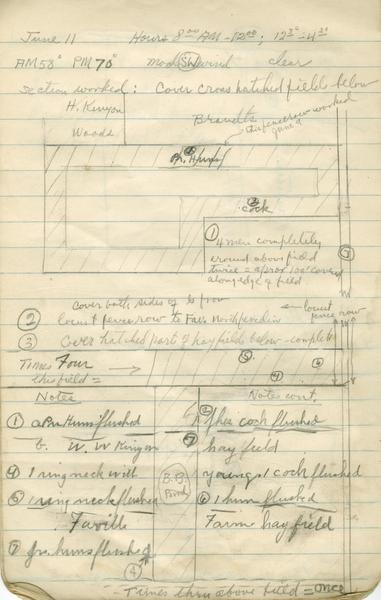 June 11 Hours 8⁰⁰ AM - 12⁰⁰; 12³⁰-4³⁰
AM 58° PM 70° mod SW wind clear
Section worked: Cover cross hatched fields below
H. Kenyon
Woods
Brandts
this fencerow worked
June 9
Pr. Huns
cock
① 4 men completely
around above field
twice = approx 100' covered
along edge of field
①
Cover both sides of
② locust fence row to Fav. North
locust
fence row
③ Cover hatched part of hayfield below - complete
Times Four
this field =
⑤
④
⑥
Notes
Notes cont.
① a Pr Huns flushed
W. W Kenyon
④ 1 ring neck with
⑤ 1 ring neck flushed
Faville
⑦ Jr. huns flushed
B.B.
Pond
② cock flushed
⑦ hay field
young. 1 cock flushed
⑥ 1 hun flushed
Farm hay field
④
Times thru above field = once